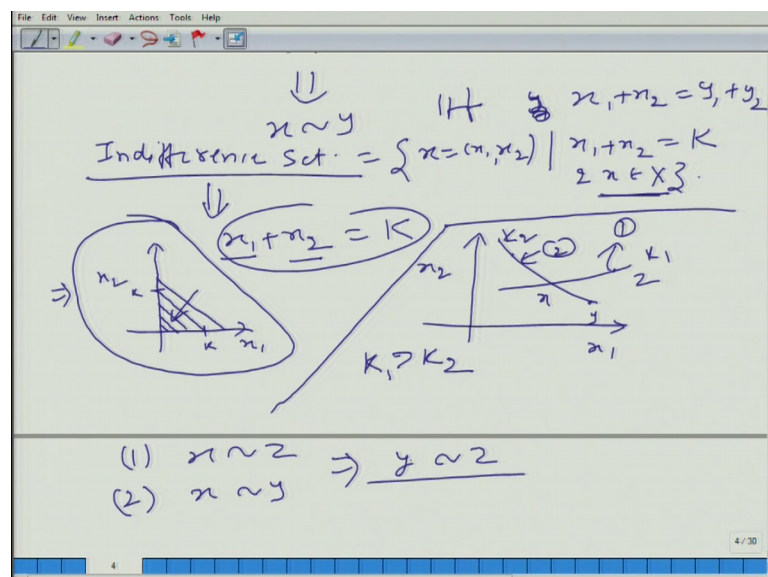 File Edit View Insert Actions Tools Help
⇓
x ~ y iff x₁+x₂ = y₁+y₂
Indifference Set. = { x=(x₁,x₂) | x₁+x₂ = K
& x ∈ X }.
⇓ x₁+x₂ = K
⇒ x₂ K K x₁
x₂ K₂ ② ① K₁ z x y x₁
K₁ > K₂
(1) x ~ z ⇒ y ~ z
(2) x ~ y
4 / 30
4